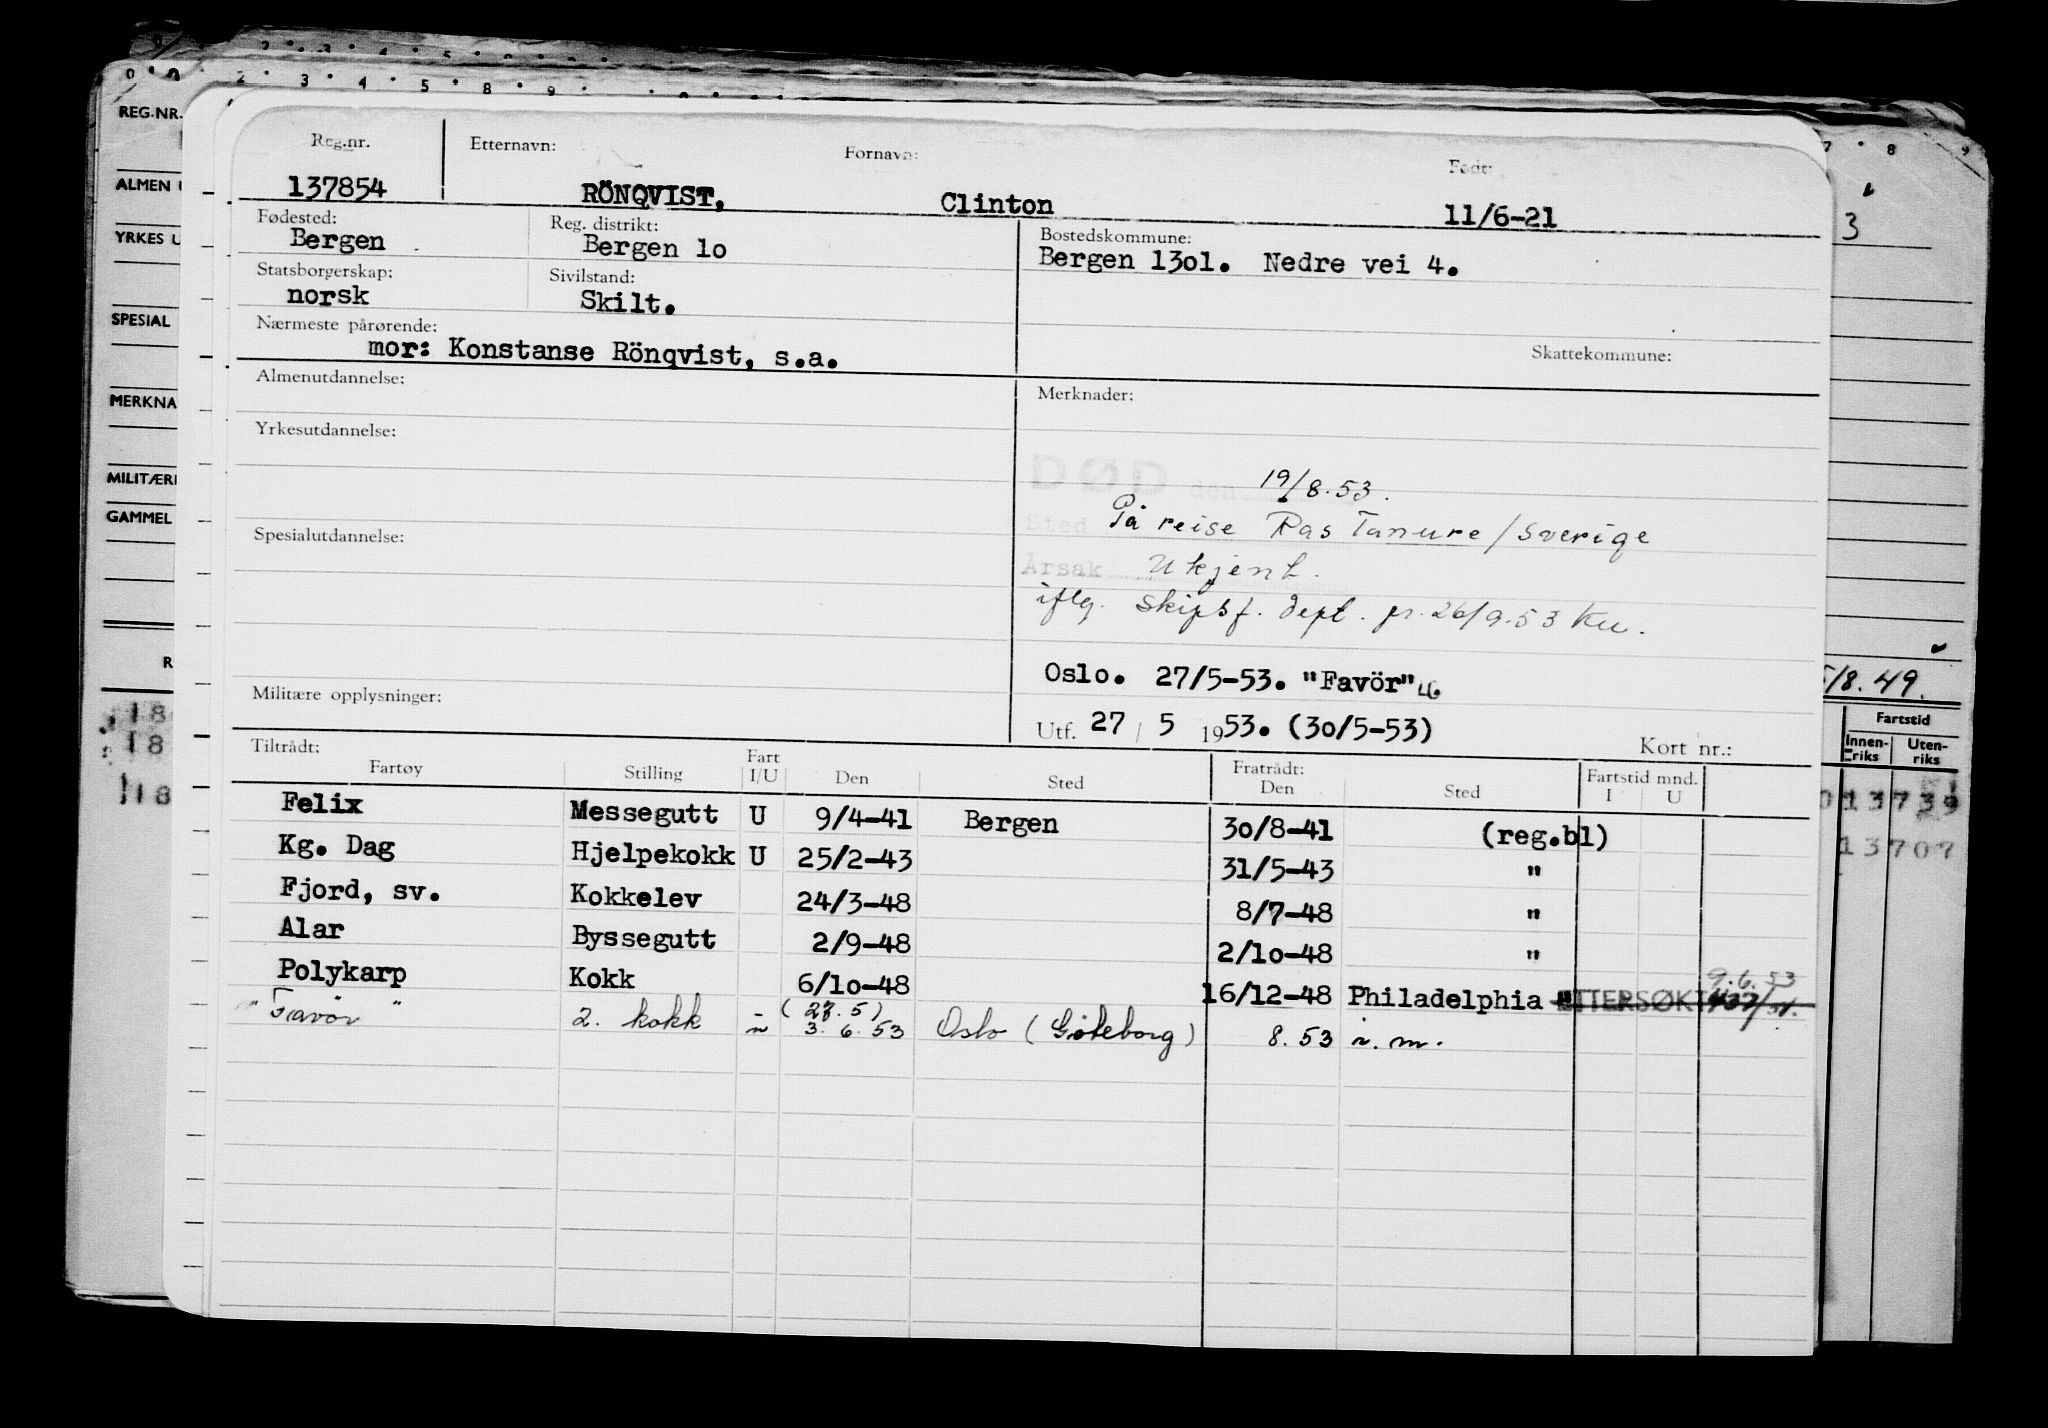 Reg.nr. Etternavn: Fornavn: Født:
137854 RÖNQVIST, Clinton 11/6-21
Fødested: Reg. distrikt: Bostedskommune:
Bergen Bergen lo Bergen 13ol. Nedre vei 4.
Statsborgerskap: Sivilstand:
norsk Skilt.
Nærmeste pårørende: Skattekommune:
mor: Konstanse Rönqvist, s.a.
Almenutdannelse: Merknader:
Yrkesutdannelse:
DØD den 19/8.53.
Sted På reise Ras Tanure/Sverige
Spesialutdannelse:
Årsak Ukjent.
iflg. Skipsf. dept. pr. 26/9.53 Ku.
Oslo. 27/5-53. "Favör"
Militære opplysninger:
Utf. 27 / 5 1953. (3o/5-53)
Kort nr.:
Tiltrådt: Fratrådt: Fartstid mnd.
Fartøy Stilling Fart I/U Den Sted Den Sted I U
Felix Messegutt U 9/4-41 Bergen 3o/8-41 (reg.bl)
Kg. Dag Hjelpekokk U 25/2-43 31/5-43 "
Fjord, sv. Kokkelev 24/3-48 8/7-48 "
Alar Byssegutt 2/9-48 2/lo-48 "
9.6.53
Polykarp Kokk 6/lo-48 16/12-48 Philadelphia " ETTERSØKT
"Favör" 2. kokk (27.5) 3.6.53 Oslo (Göteborg) 8.53 n.m.
REG.NR.
ALMEN U
YRKES U
SPESIAL
MERKNA
MILITÆRE
GAMMEL
R
3
/8.49.
Fartstid
Innen-riks Uten-riks